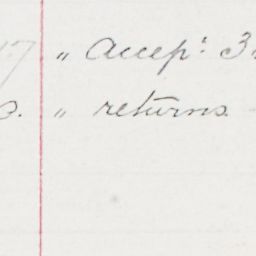 17 " Accep: 3
s. " returns -